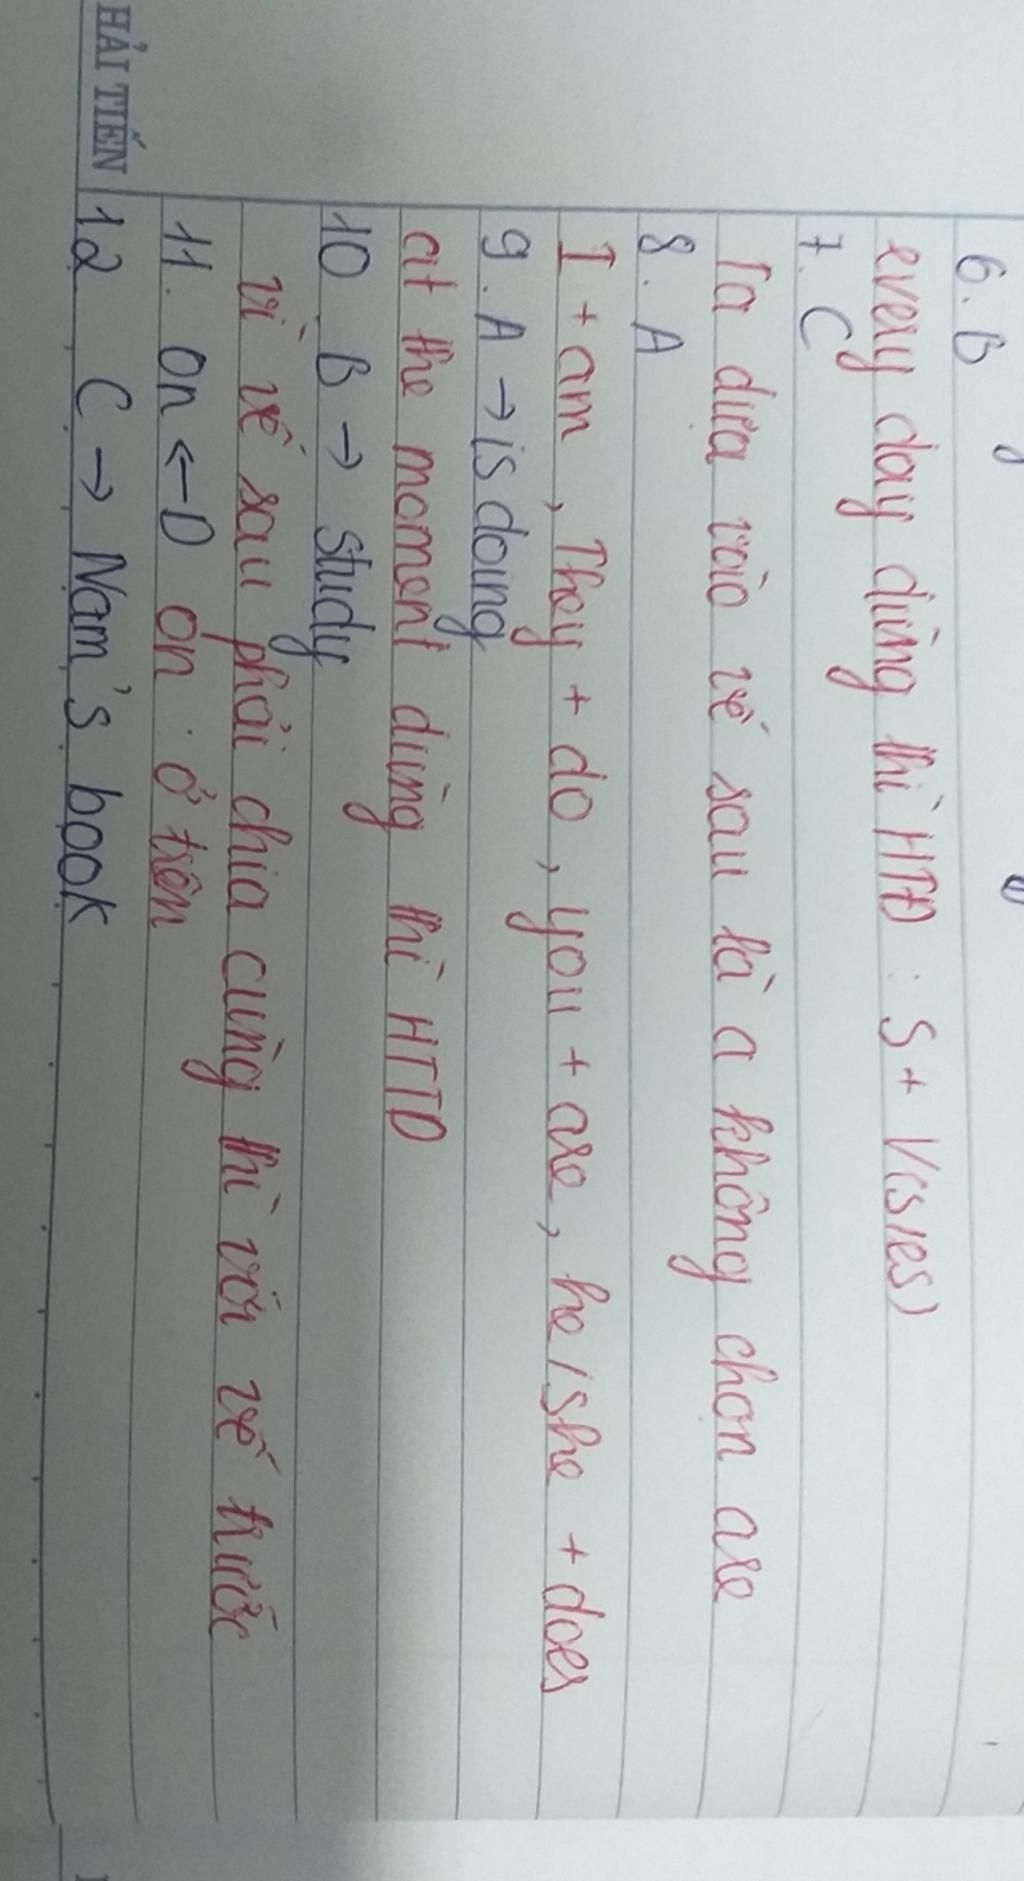 6. B
every day dùng thì HTĐ : S + V(s/es)
7. C
Ta dựa vào vế sau là a không chọn are
8. A
I + am, They + do, you + are, he/she + does
9. A → is doing
at the moment dùng thì HTTD
10 B → study
vì vế sau phải chia cùng thì với vế trước
11. On ← D on : ở trên
12 C → Nam's book
HẢI TIẾN